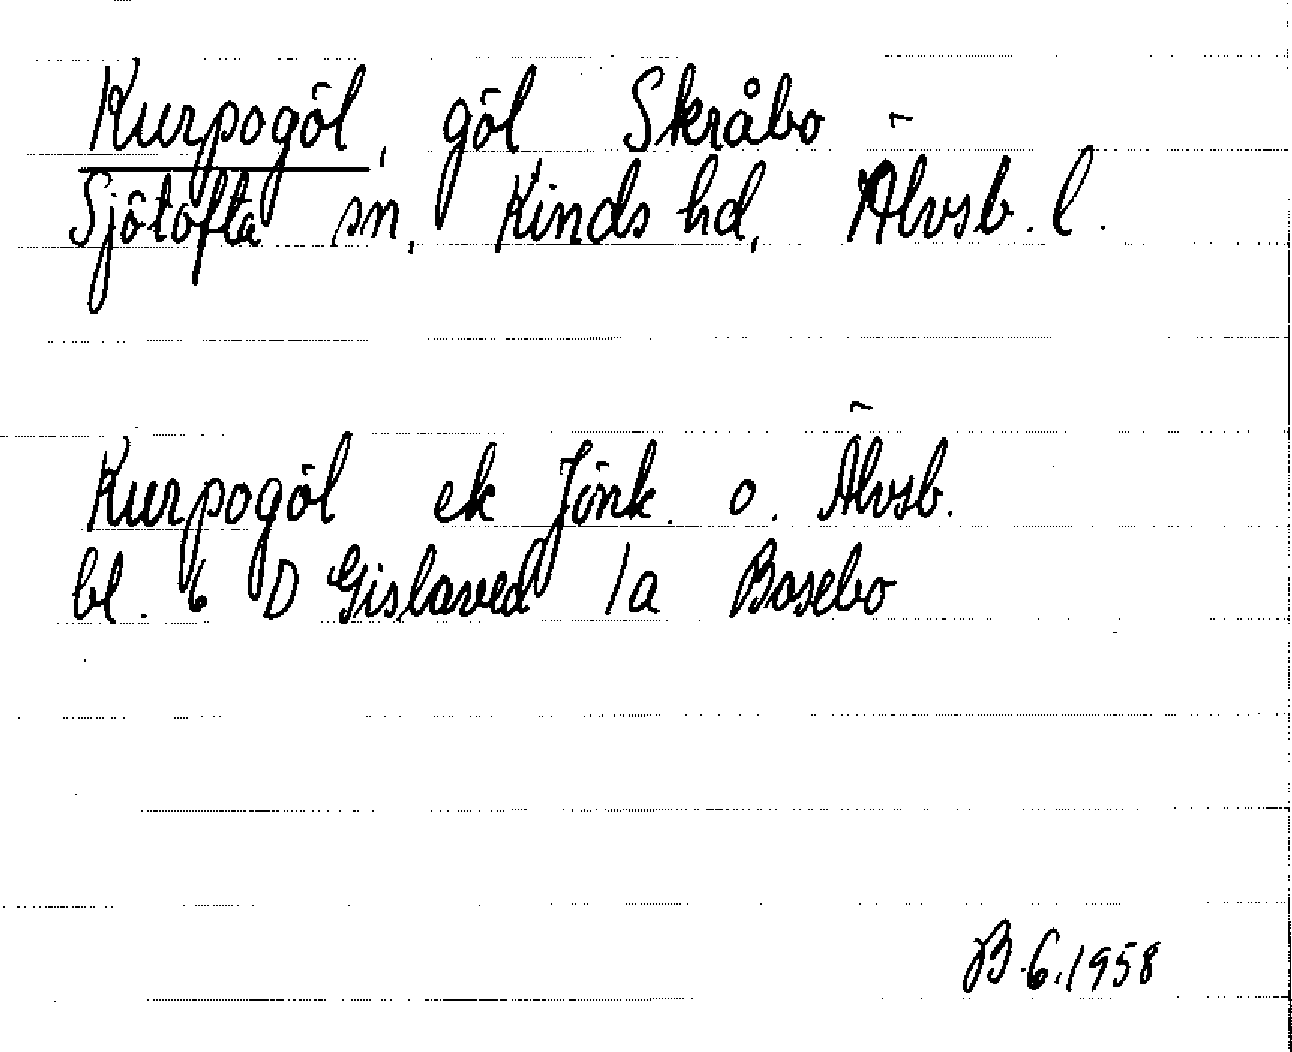 Kurpogöl, göl Skråbo
Sjötofta sn, Kinds hd, Älvsb. l.
Kurpogöl ek Jönk. o. Älvsb.
bl. 6 D Gislaved 1a Bosebo
B.6.1958